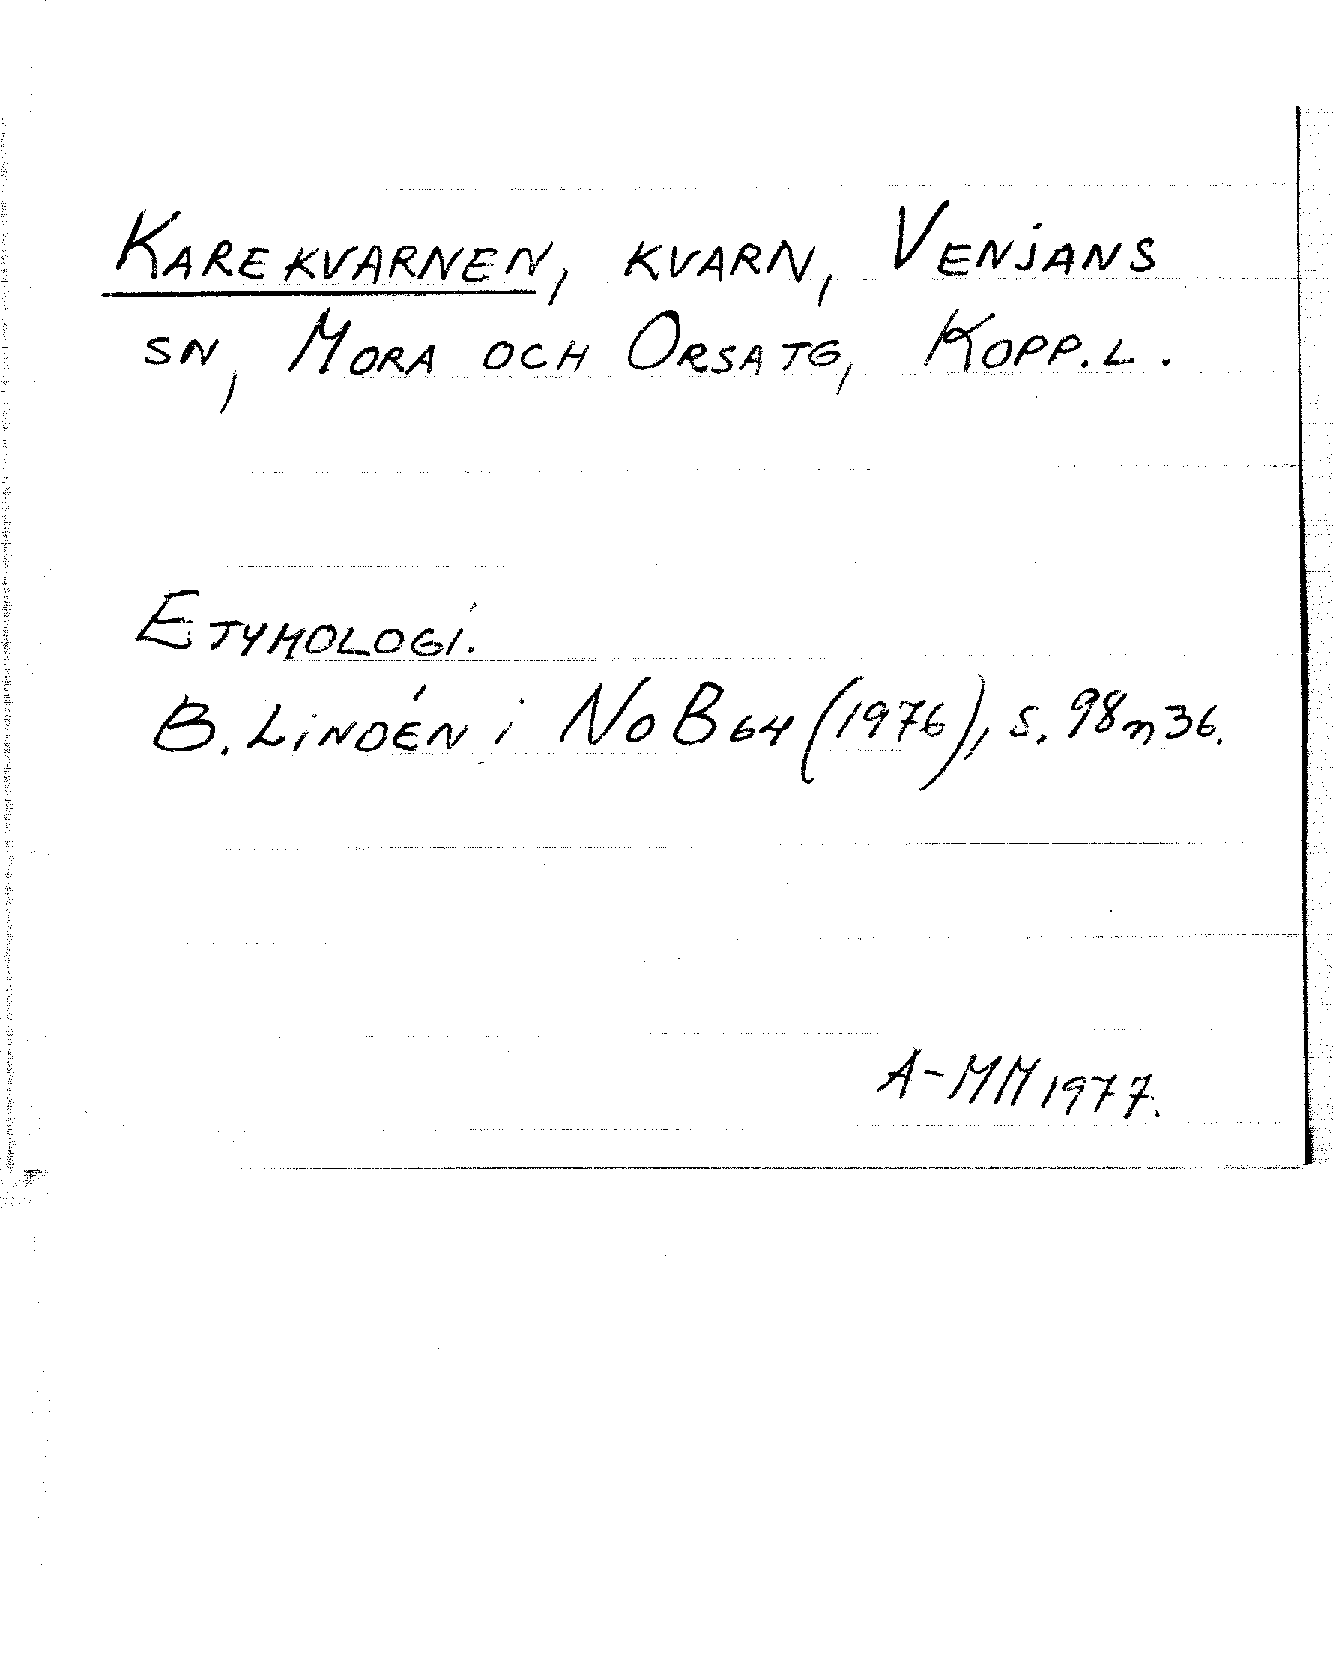 KAREKVARNEN, KVARN, VENJANS
SN, MORA OCH ORSA TG, KOPP. L.
ETYMOLOGI.
B. LINDÉN i NoB 64 (1976), S. 98 n 36.
A-MM 1977.